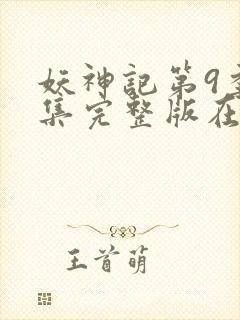 妖神記第9
集完整版在
王首萌